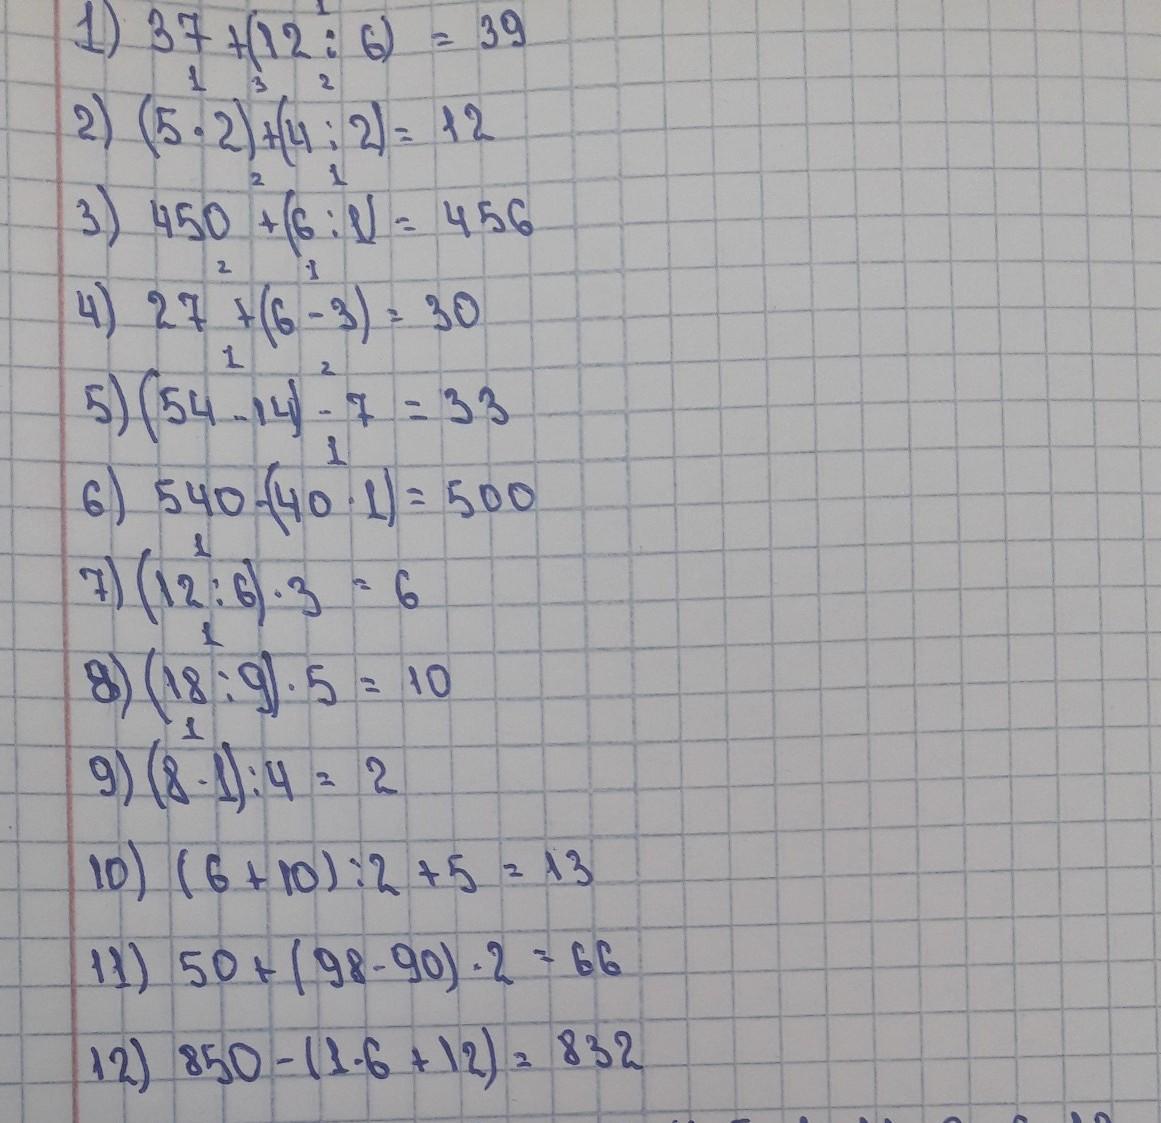 1
1) 37 + (12 : 6) = 39
1 3 2
2) (5 · 2) + (4 : 2) = 12
2 1
3) 450 + (6 : 1) = 456
2 1
4) 27 + (6 - 3) = 30
1 2
5) (54 - 14) - 7 = 33
1
6) 540 - (40 · 1) = 500
1
7) (12 : 6) · 3 = 6
1
8) (18 : 9) · 5 = 10
1
9) (8 · 1) : 4 = 2
10) (6 + 10) : 2 + 5 = 13
11) 50 + (98 - 90) · 2 = 66
12) 850 - (1 · 6 + 12) = 832